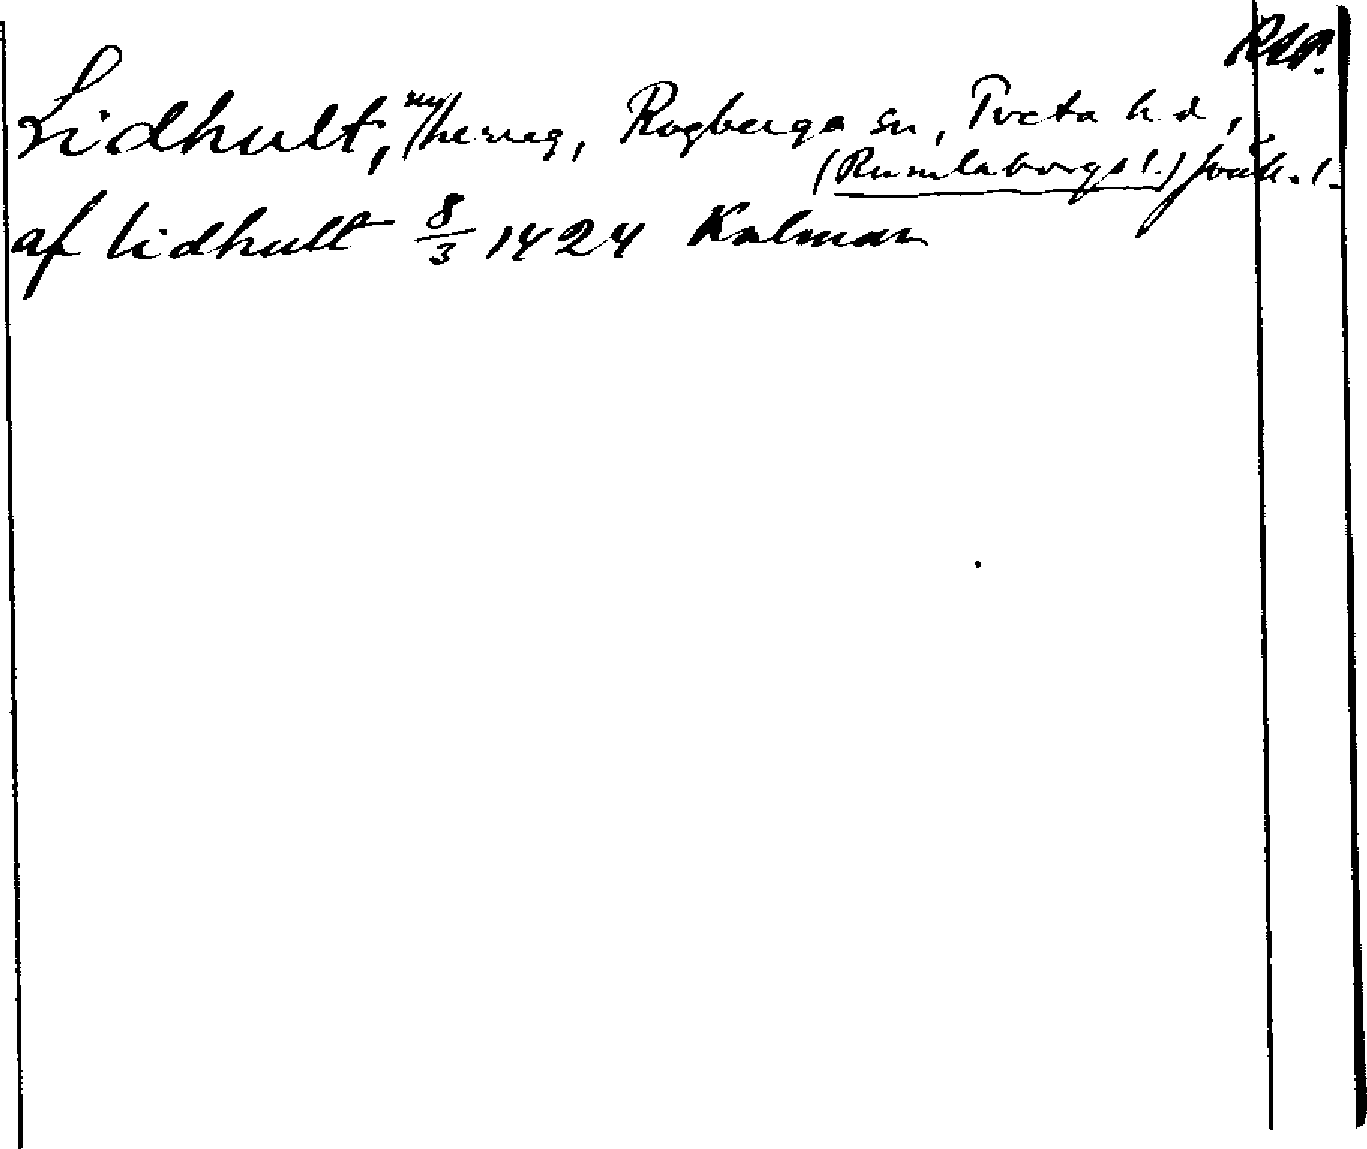 RAP.
Lidhult, ny herreg, Rogberga sn, Tveta hd,
(Rumlaborgs l.) Smål.
af lidhult 8/3 1424 Kalmar